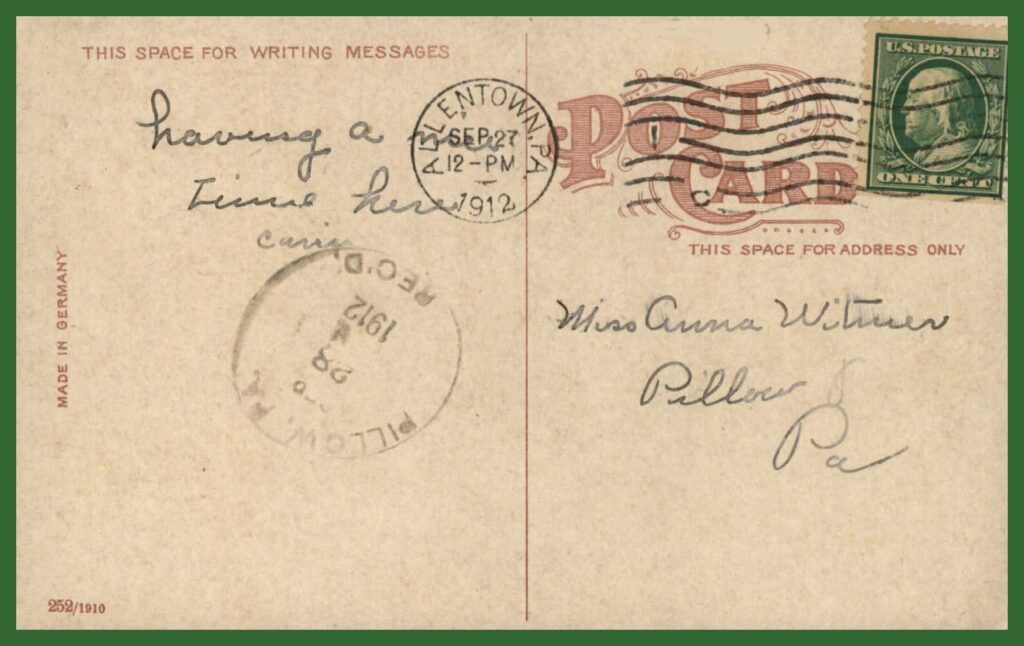 THIS SPACE FOR WRITING MESSAGES
having a
time here
Carrie
ALLENTOWN, PA
SEP 27
12-PM
1912
POST CARD
U.S. POSTAGE
ONE CENT
THIS SPACE FOR ADDRESS ONLY
Miss Anna Witmer
Pillow
Pa
PILLOW, PA.
28
1912
REC'D.
MADE IN GERMANY
252/1910